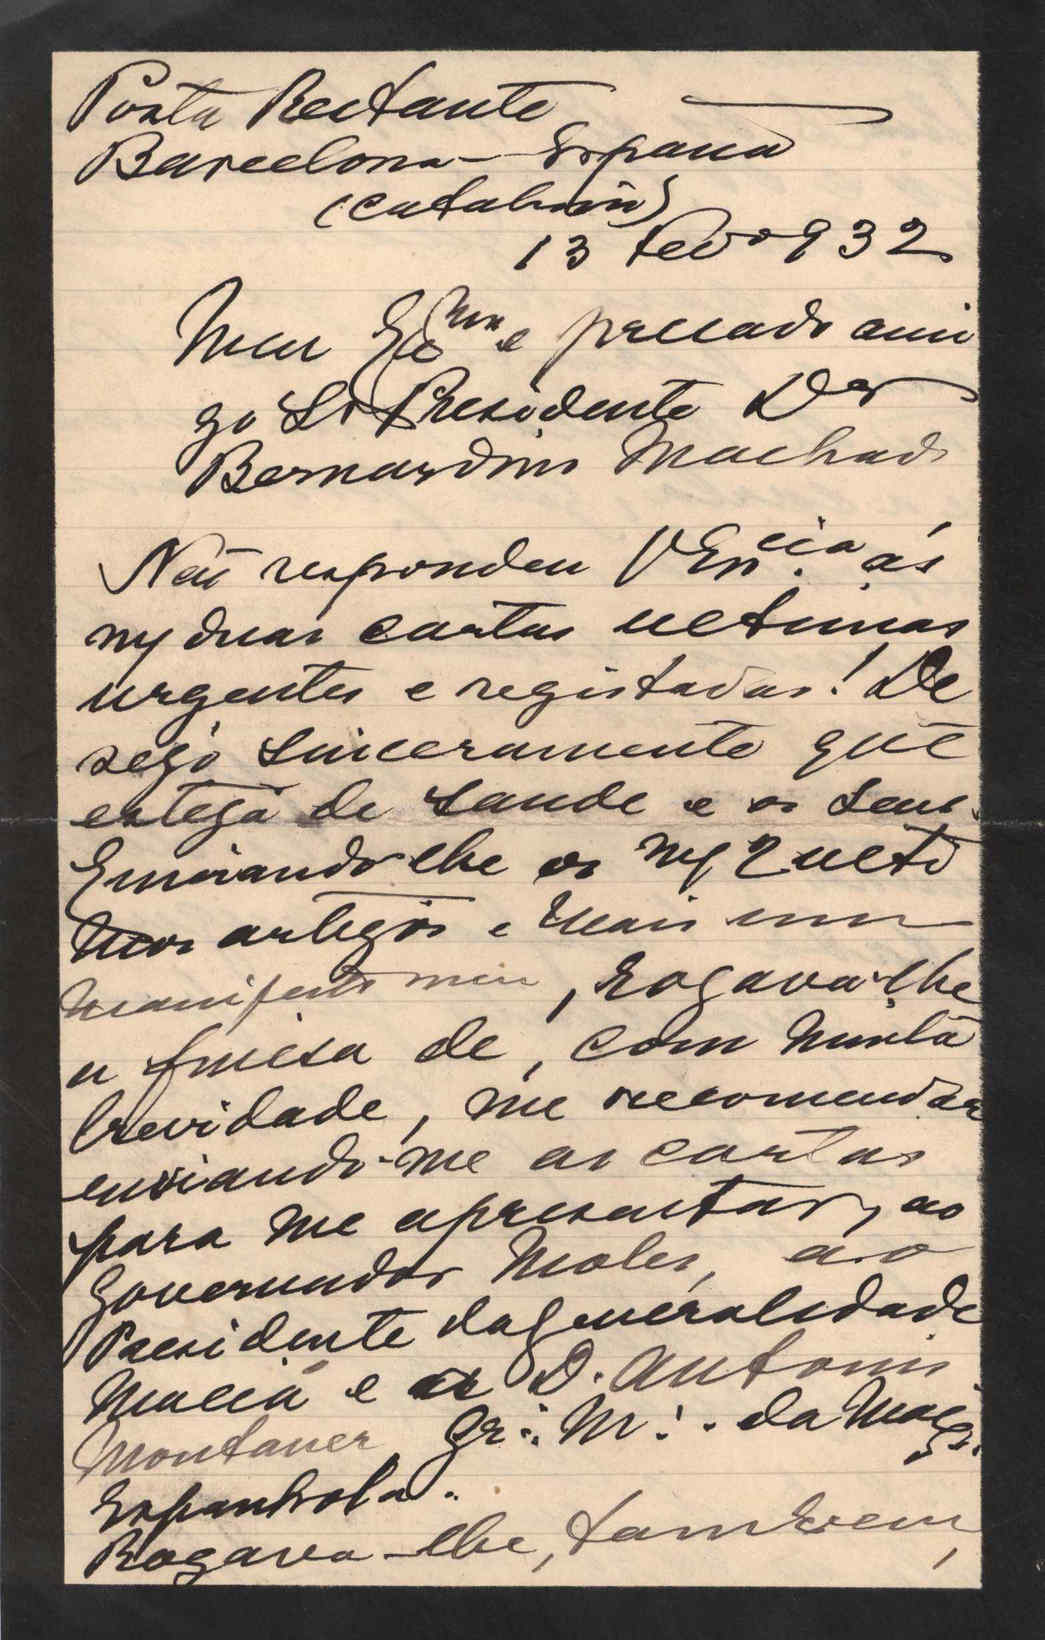 Posta Restante
Barcelona - España
(Cataluña)
13 Fevo 932
Meu Exmo e presado ami
go Sr Presidente Dor
Bernardino Machado
Não respondeu V Exa. ás
mas duas cartas ultimas
urgentes e registadas! De
sejo sinceramente que
esteja de saude e os seus.
Enviando-lhe os ms 2 ulti
mos artigos e mais um
manifesto meu, rogava-lhe
a fineza de, com muita
brevidade, me recomendar
enviando-me as cartas
para me apresentar, ao
Governador Moles, ao
Presidente da Generalidade
Maciá e a D. Antonio
Montaner Gr∴ M∴ da Maç∴
Espanhola.
Rogava-lhe, tambem,